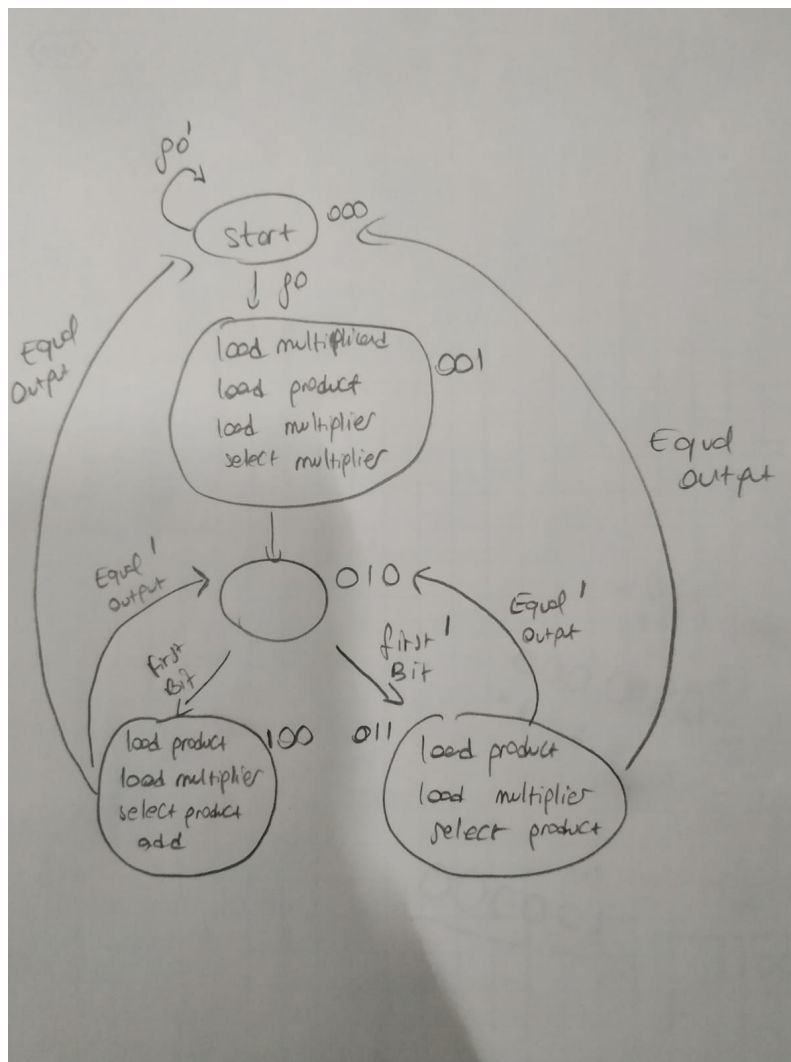 go'
start
000
go
Equal
Output
load multiplicand
load product
load multiplier
select multiplier
001
Equal
output
Equal'
output
010
Equal'
Output
First
Bit
first'
Bit
load product
load multiplier
select product
add
100
011
load product
load multiplier
select product